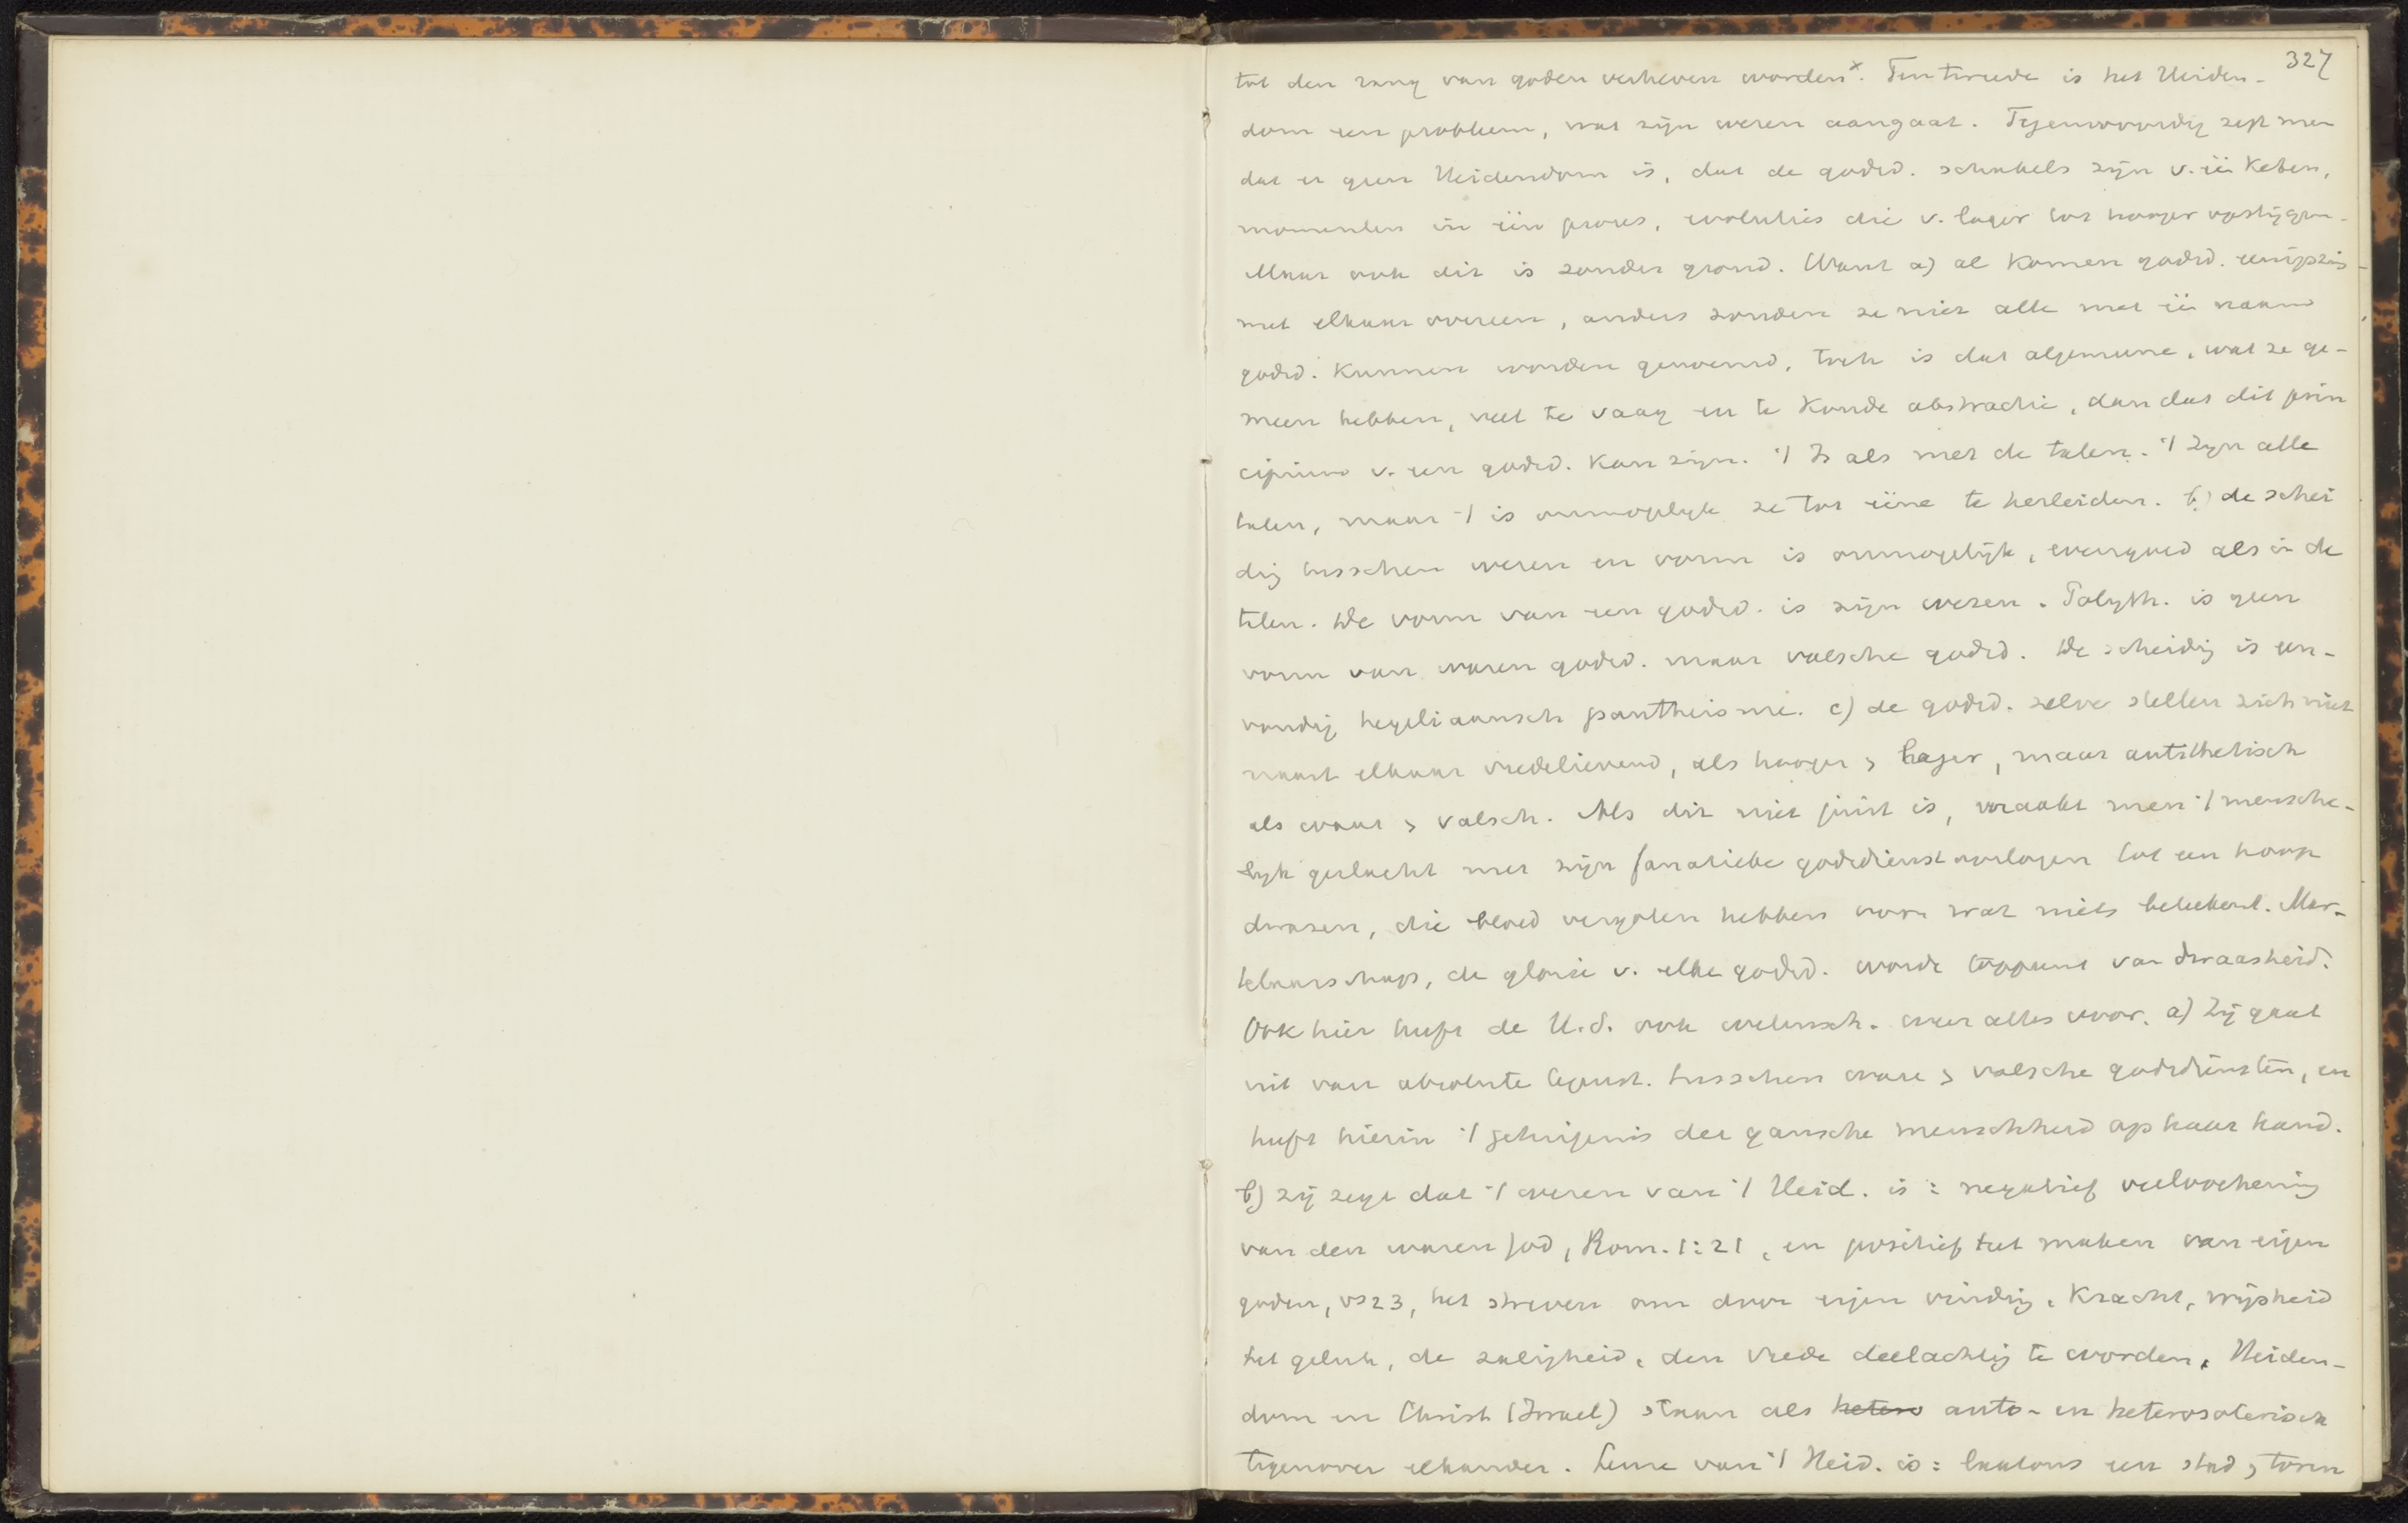 327
tot den rang van goden verheven worden x. Ten tweede is het Heiden-
dom een probleem, wat zijn wezen aangaat. Tegenwoordig zegt men
dat er geen Heidendom is, dat de godsd. schakels zijn v. één keten,
momenten in één proces, evoluties die v. lager tot hooger opstijgen.
Maar ook dit is zonder grond. Want a) al komen godsd. eenigszins
met elkaar overeen, anders zouden ze niet alle met één naam
godsd. kunnen worden genoemd, toch is dat algemeene, wat ze ge-
meen hebben, veel te vaag en te koude abstractie, dan dat dit prin
cipium v. een godsd. kan zijn. 't Is als met de talen. 't Zijn alle
talen, maar 't is onmogelijk ze tot ééne te herleiden. b) de schei
dig tusschen wezen en vorm is onmogelijk, evengoed als in de
talen. De vorm van een godsd. is zijn wezen. Polyth. is geen
vorm van waren godsd. maar valsche godsd. De scheidig is een-
voudig hegeliaansch pantheisme. c) de godsd. zelve stellen zich niet
naast elkaar vredelievend, als hooger > lager, maar antithetisch
als waar > valsch. Als dit niet juist is, maakt men 't mensche-
lijk geslacht met zijn fanatieke godsdienstoorlogen tot een hoop
dwazen, die bloed vergoten hebben voor wat niets beteekent. Mar-
telaarschap, de glorie v. elke godsd. wordt toppunt van dwaasheid.
Ook hier heeft de H.S. ook wetensch. weer alles voor. a) Zij gaat
uit van absolute tegenst. tusschen ware > valsche godsdiensten, en
heeft hierin 't getuigenis der gansche menschheid op haar hand.
b) zij zegt dat 't wezen van 't Heid. is: negatief verloochening
van den waren God, Rom. 1:21, en positief het maken van eigen
goden, vs 23, het streven om door eigen vinding, kracht, wijsheid
het geluk, de zaligheid, den vrede deelachtig te worden. Heiden-
dom en Christ (Israel) staan als hetero auto- en heterosoterisch
tegenover elkander. Leuze van 't Heid. is: laat ons een stad > toren